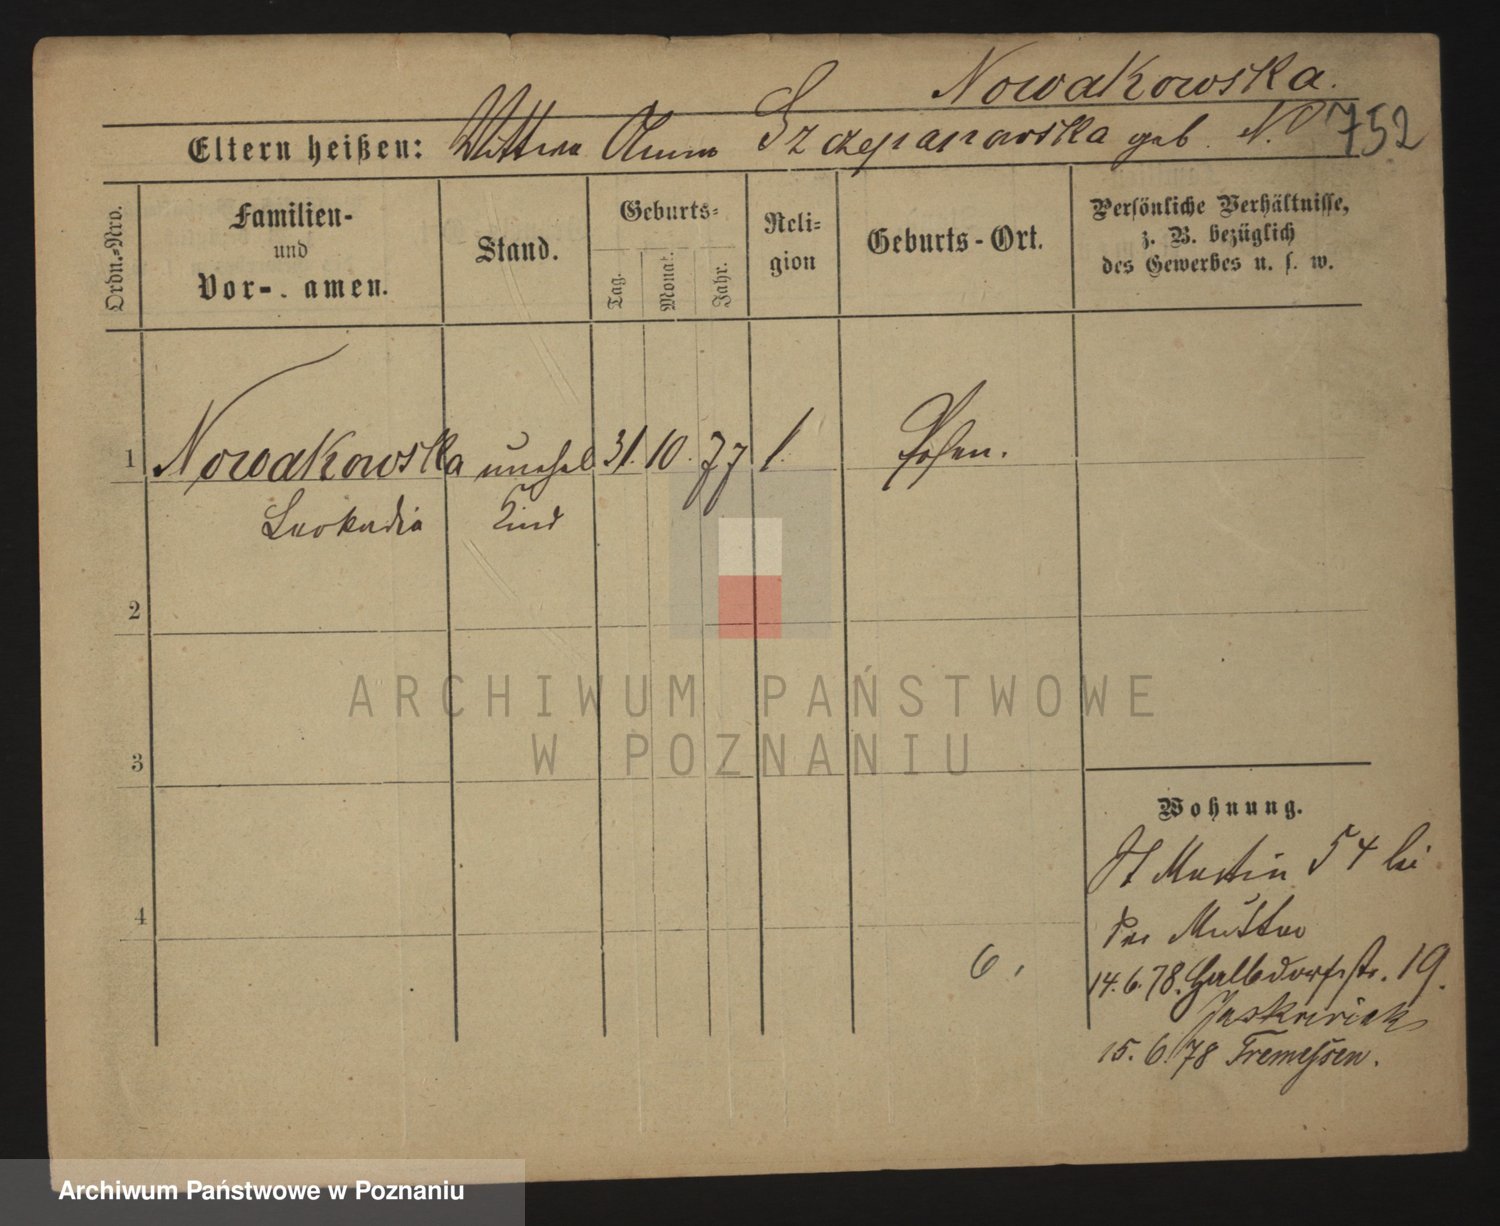 Nowakowska.
Eltern heißen: Wittwe Anna Szczepanowska geb. N. 752
Ordn.-Nro.
Familien-
und
Vor-. amen.
Stand.
Geburts-
Tag.
Monat.
Jahr.
Reli-
gion
Geburts-Ort.
Persönliche Verhältnisse,
z. B. bezüglich
des Gewerbes u. s. w.
1 Nowakowska unehel 31. 10. 77 Posen.
Leokadia Kind
2
3
4
Wohnung.
St Martin 54 bei
der Mutter
6.
14.6.78. Halbdorfstr. 19.
Jaskowiak
15.6.78 Tremessen.
ARCHIWUM PAŃSTWOWE
W POZNANIU
Archiwum Państwowe w Poznaniu